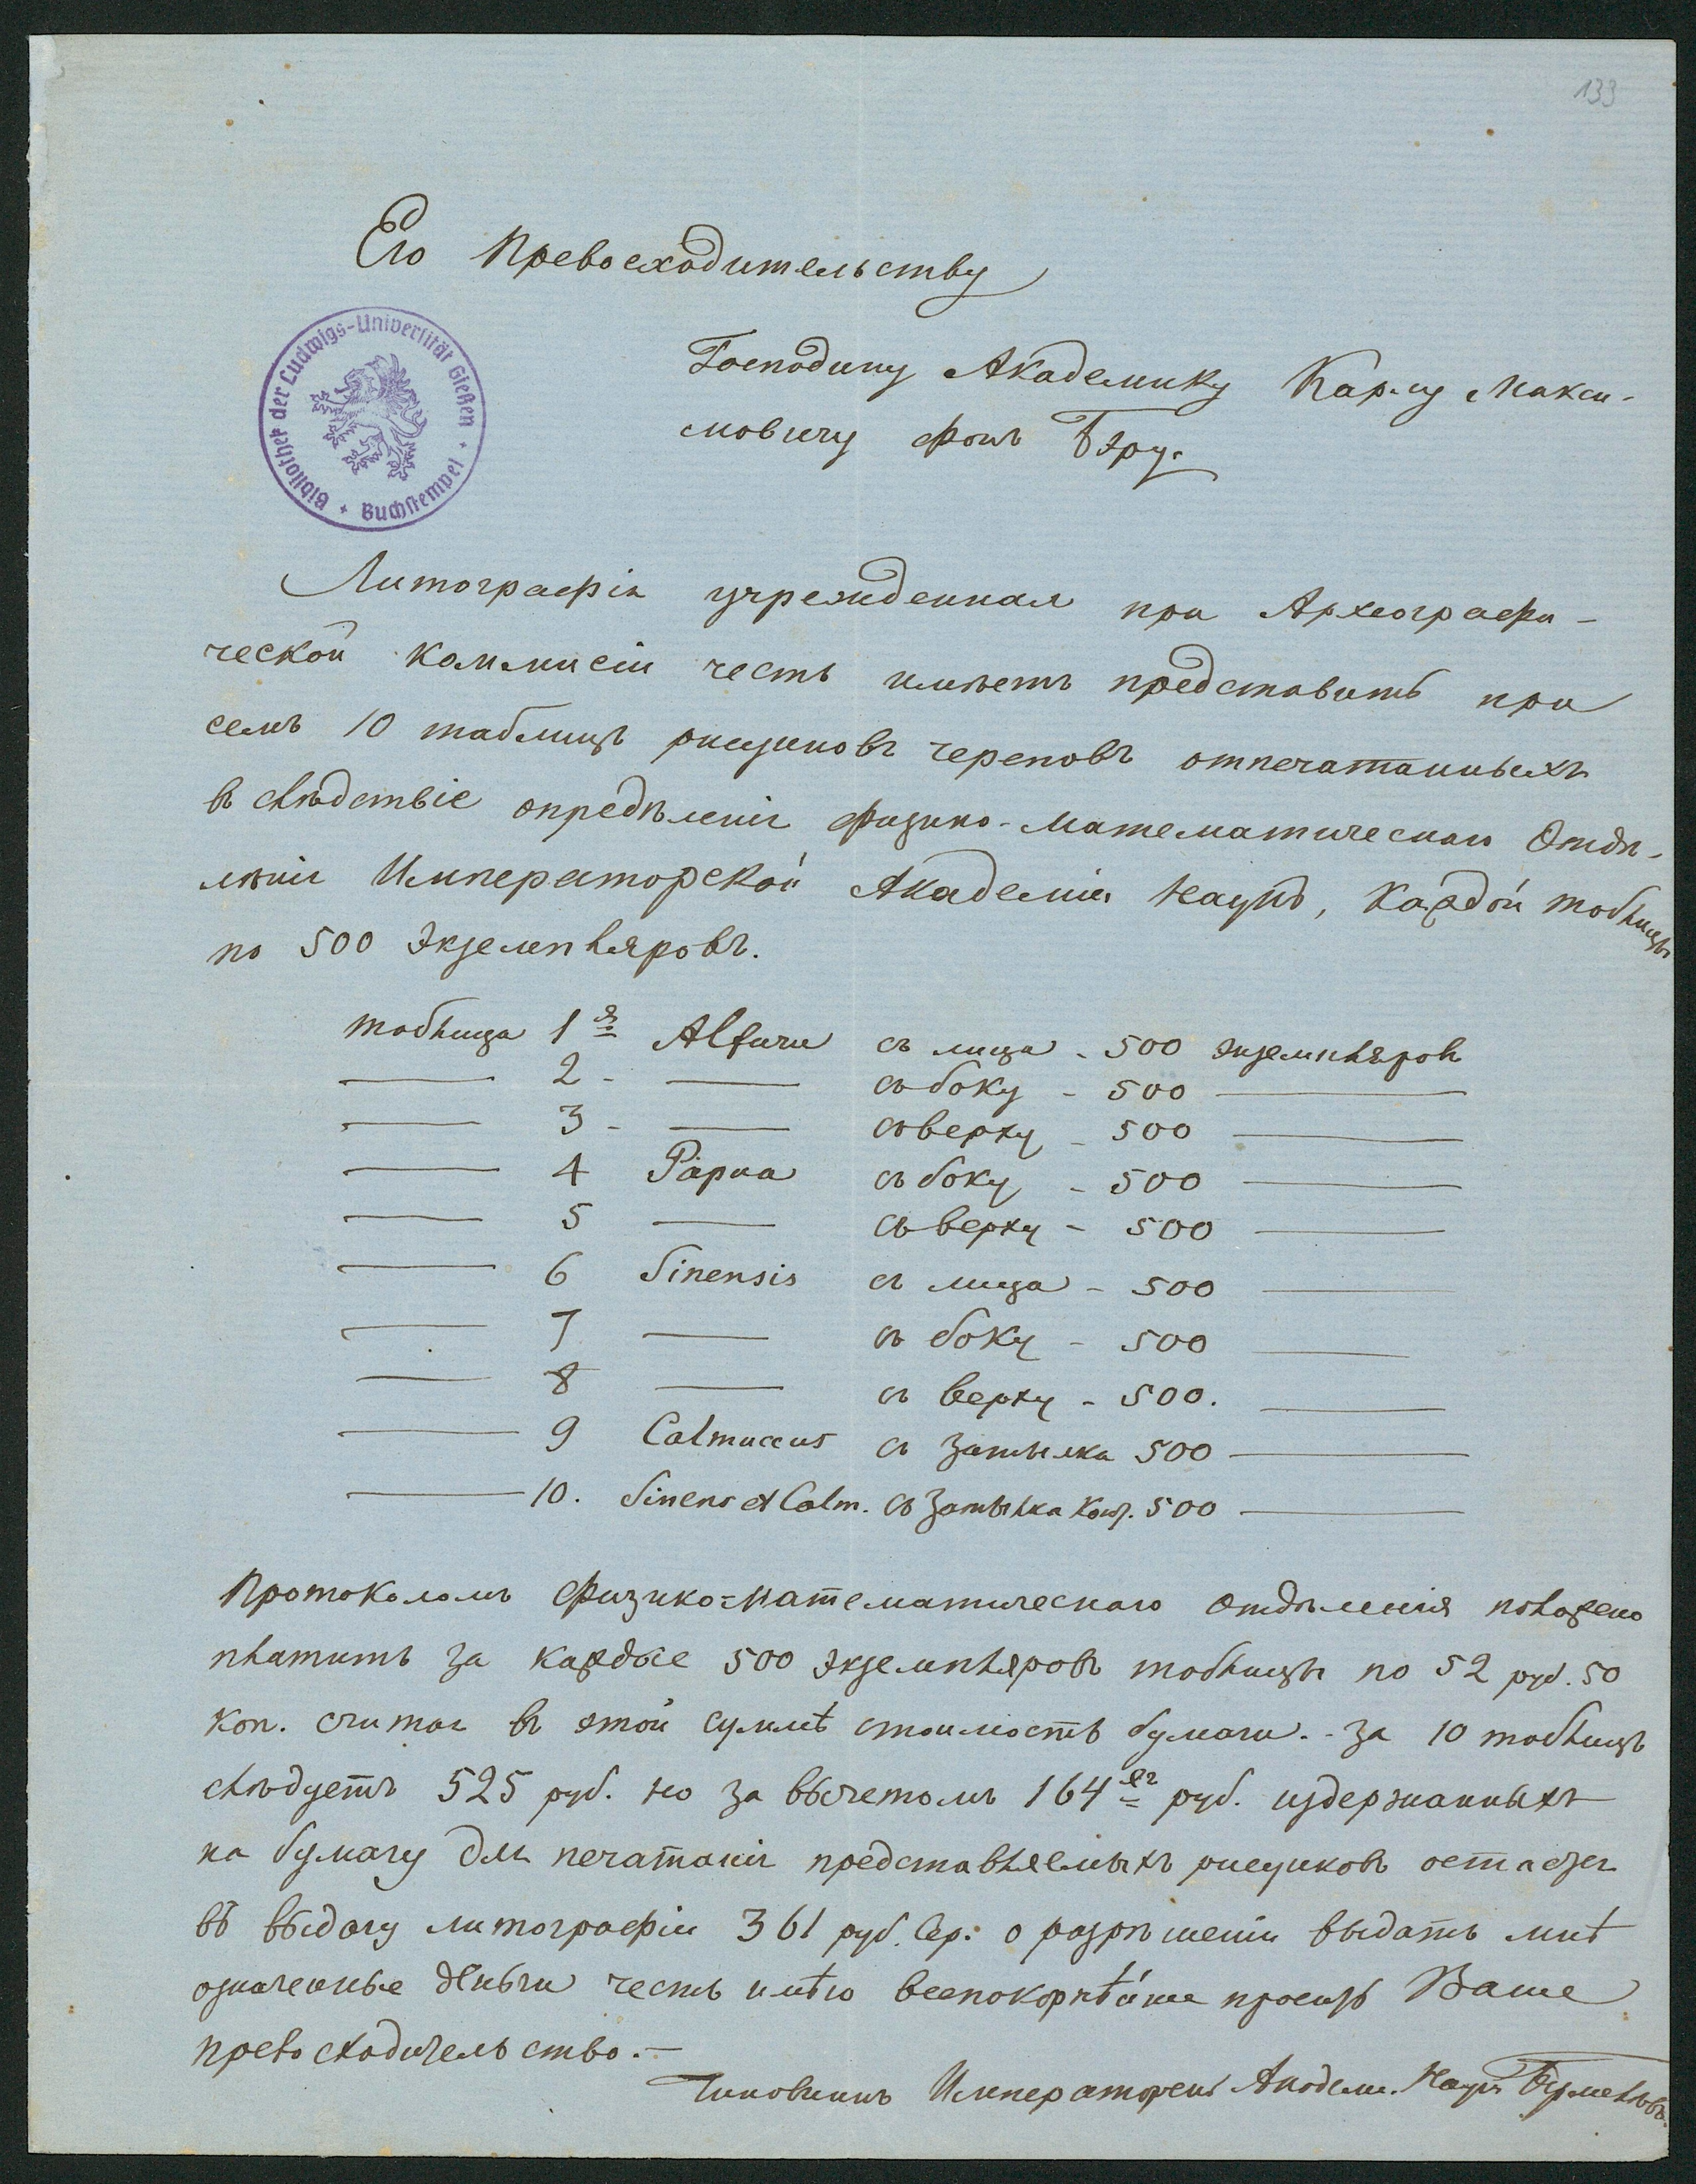 133
Его Превосходительству
Господину Академику Карлу Макси-
мовичу фонъ Бэру.
Bibliothek der Ludwigs-Universität Gießen + Buchstempel +
Литографія учрежденная при Археографи-
ческой коммисіи честь имѣетъ представить при
семъ 10 таблицъ рисунковъ череповъ отпечатанныхъ
въ слѣдствіе опредѣленія физико-математическаго Отдѣ-
ленія Императорской Академіи Наукъ, каждой таблицы
по 500 экземпляровъ.
таблица 1я Alfuru съ лица - 500 экземпляровъ
—— 2 - —— съ боку - 500 ——
—— 3 - —— съ верху - 500 ——
—— 4 Papua съ боку - 500 ——
—— 5 —— съ верху - 500 ——
—— 6 Sinensis съ лица - 500 ——
—— 7 —— съ боку - 500 ——
—— 8 —— съ верху - 500. ——
—— 9 Calmuccus съ затылка 500 ——
—— 10. Sinens et Calm. съ затылка 500 ——
Протоколомъ физико=математическаго отдѣленія положено
платить за каждые 500 экземпляровъ таблицы по 52 руб. 50
коп. считая въ этой суммѣ стоимость бумаги. - За 10 таблицъ
слѣдуетъ 525 руб. но за вычетомъ 164хъ руб. издержанныхъ
на бумагу для печатанія представляемыхъ рисунковъ остается
въ выдачу литографіи 361 руб. Сер: о разрѣшеніи выдать мнѣ
означенные деньги честь имѣю всепокорнѣйше просить Ваше
превосходительство. —
Чиновникъ Императорск. Академ. Наукъ